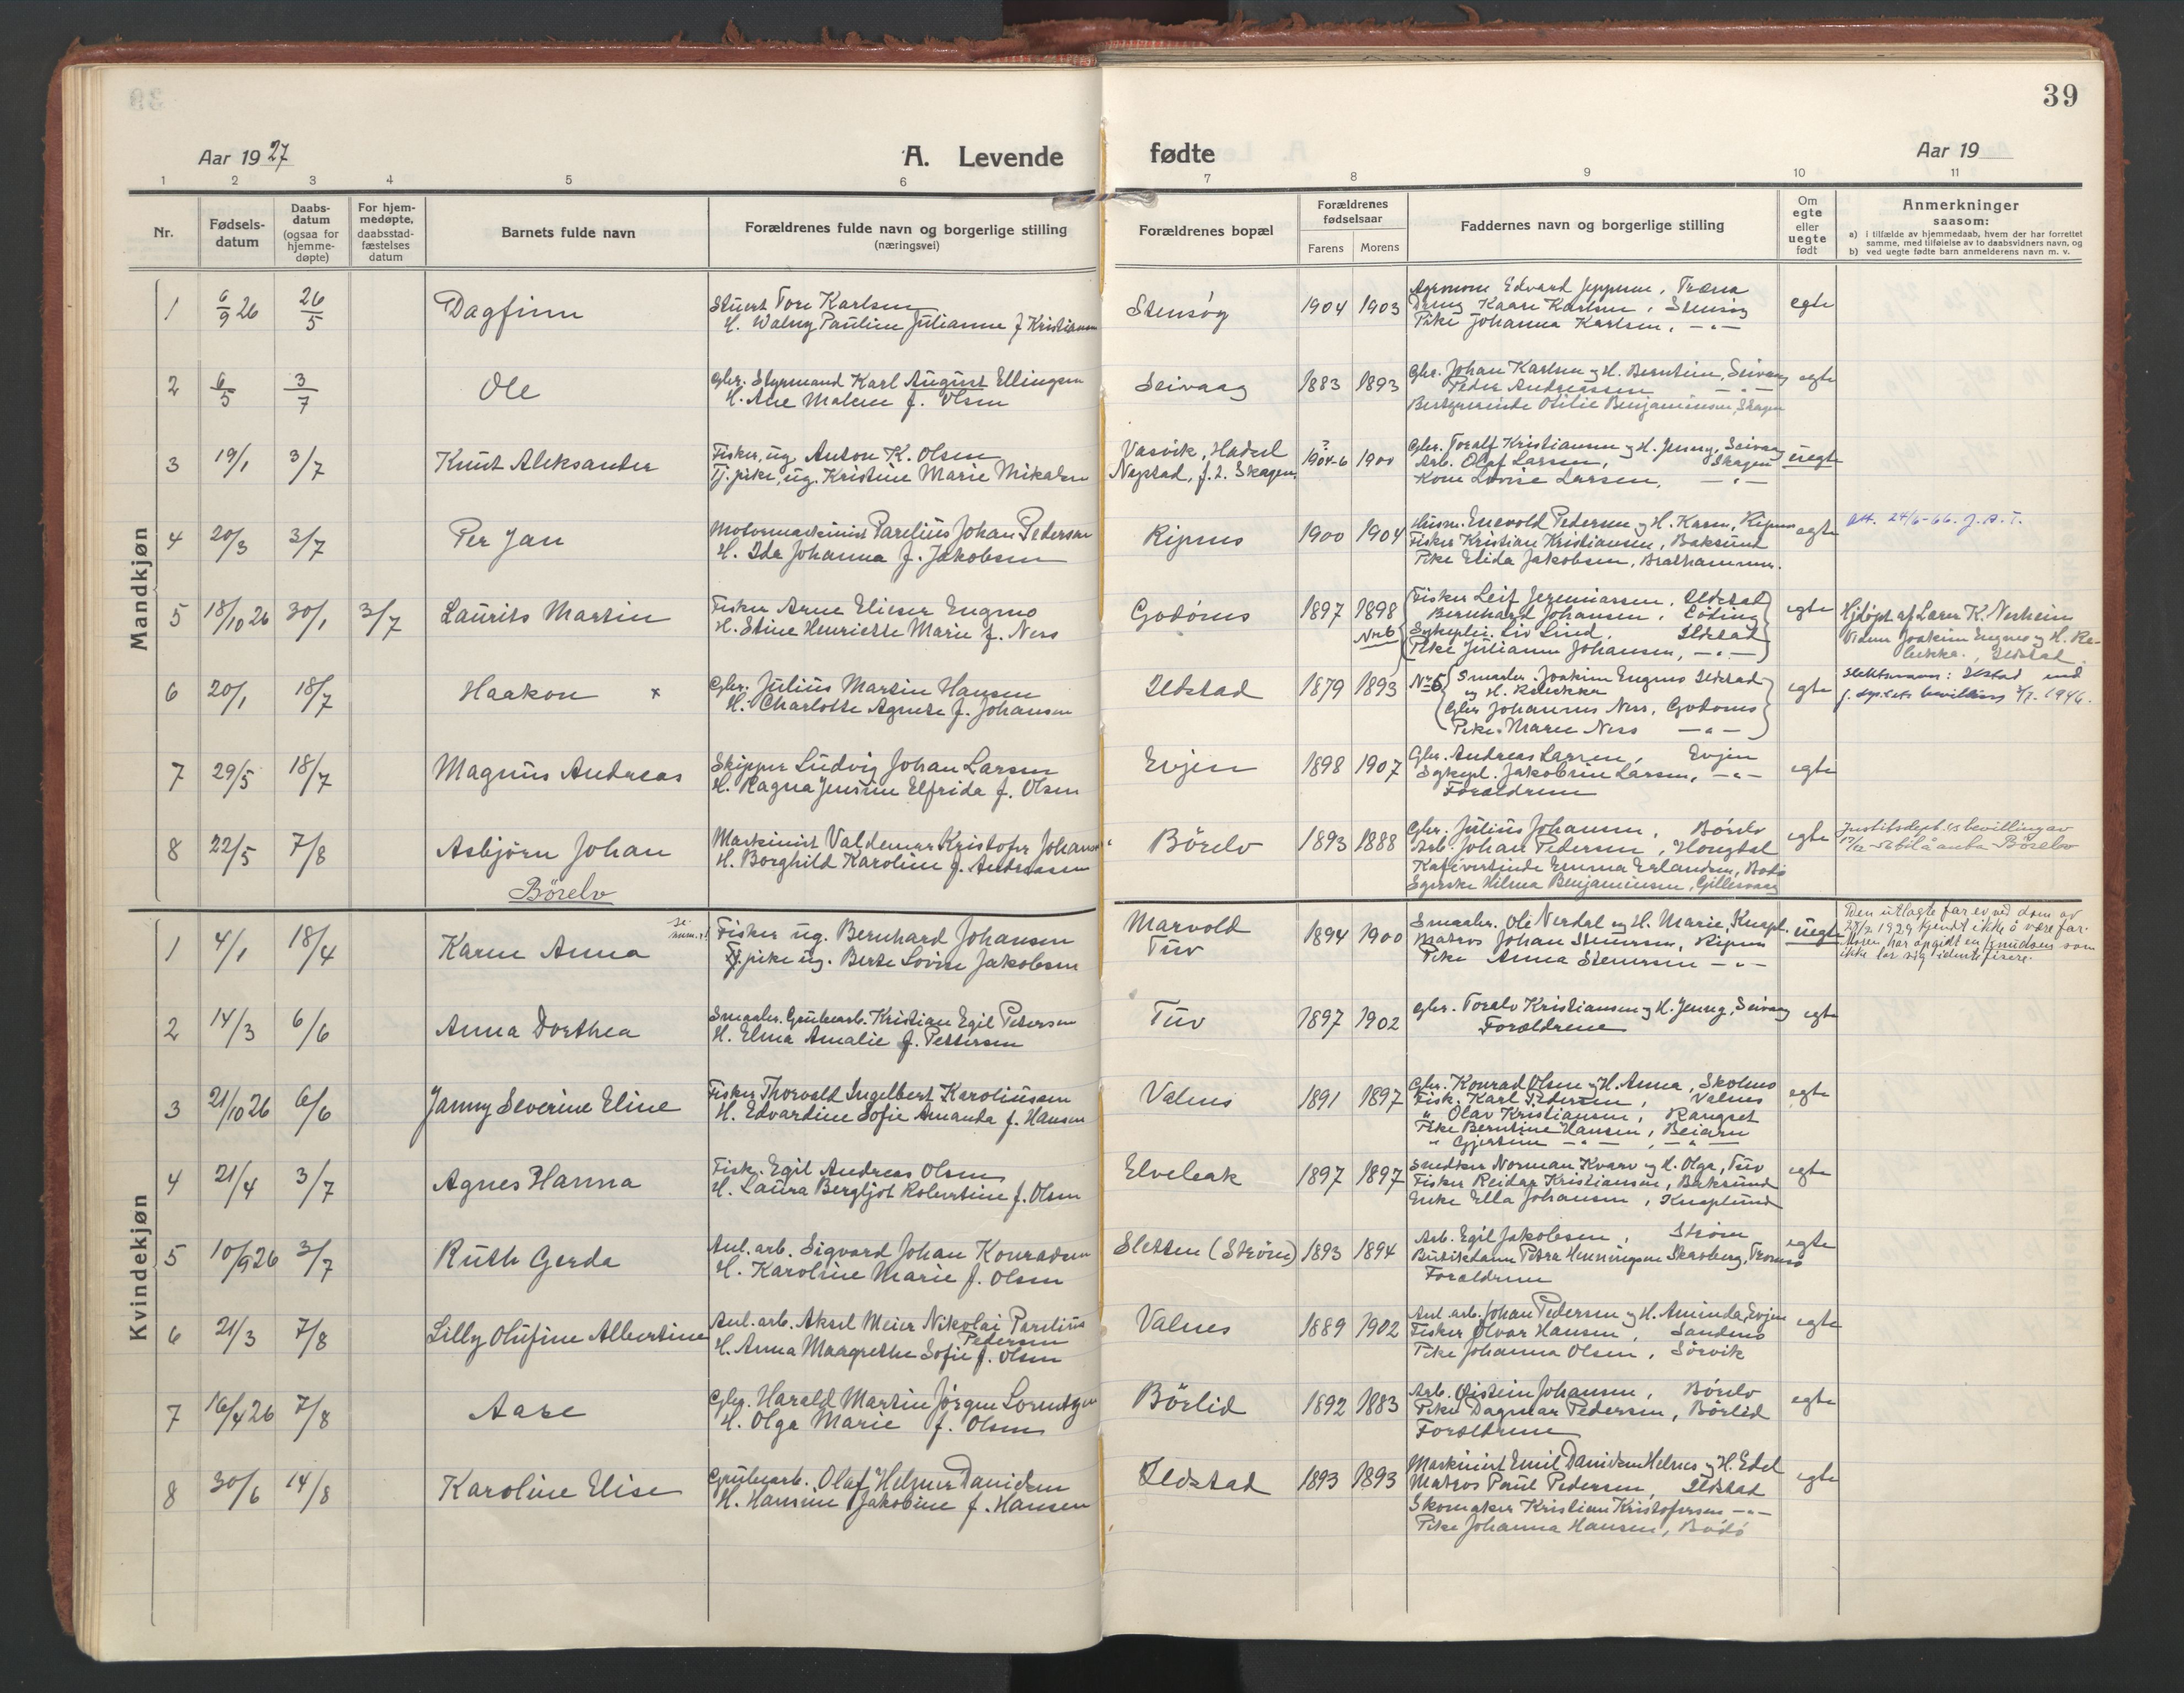 39
Aar 1927
A. Levende fødte
Aar 19
1 2 3 4 5 6 7 8 9 10 11
Nr.
Fødsels-
datum
Daabs-
datum
(ogsaa for
hjemme-
døpte)
For hjem-
medøpte,
daabsstad-
fæstelses
datum
Barnets fulde navn
Forældrenes fulde navn og borgerlige stilling
(næringsvei)
Forældrenes bopæl
Forældrenes
fødselsaar
Farens Morens
Faddernes navn og borgerlige stilling
Om
egte
eller
uegte
født
Anmerkninger
saasom:
a) i tilfælde av hjemmedaab, hvem der har forrettet
samme, med tilføielse av to daabsvidners navn, og
b) ved uegte fødte barn anmelderens navn m. v.
Mandkjøn
1 6/9 26 26/5 Dagfinn
Stuert Tore Karlsen
H. Walny Pauline Julianne f. Kristiansen
Stensøg 1904 1903
Agronom Edvard Jeppesen, Træna
Dreng Kaare Karlsen, Stensøg
Pike Johanna Karlsen, —"—
egte
2 6/5 3/7 Ole
Gbr. Styrmand Karl August Ellingsen
H. Ane Malene f. Olsen
Seivaag 1883 1893
Gbr. Johan Karlsen og H. Berntine, Seivaag
Peder Andreassen —"—
Bestyrerinde Otilie Benjaminsen, Skagen
egte
3 19/1 3/7 Knut Aleksander
Fisker, ug. Anton K. Olsen
Tj.pike, ug. Kristine Marie Mikalsen
Vasvik, Hadsel
Nystad, f. t. Skagen
? 1904-6 1900
Gbr. Toralf Kristiansen og H. Jenny, Seivaag
Arb. Olaf Larsen, Skagen
Kone Lovise Larsen, —"—
uegte
4 20/3 3/7 Per Jan
Motormaskinist Parelius Johan Pedersen
H. Ida Johanna f. Jakobsen
Ripnes 1900 1904
Husm. Enevold Pedersen og H. Karen, Ripnes
Fisker Kristian Kristiansen, Baksund
Pike Elida Jakobsen,
egte
Att. 24/6-66. J.A.T.
5 18/10 26 30/1 3/7 Laurits Martin
Fisker Arne Elieser Engmo
H. Stine Henriette Marie f. Ness
Godønes 1897 1898
Nr 6
Fisker Leif Jeremiassen, Ildstad
Bernhard Johansen, Løding
Sykepler. Liv Lind, Ildstad
Pike Julianne Johansen, —"—
egte
Hjdøpt af Lærer K. Nerheim
Vidner Joakim Engmo og H. Re-
bekka, Ildstad.
6 20/1 18/7 Haakon x
Gbr. Julius Martin Hansen
H. Charlotte Agnete f. Johansen
Ildstad 1879 1893
Nr 5 Smaabr. Joakim Engmo Ildstad
og H. Rebekka
Gbr Johannes Ness, Godønes
Pike Marie Ness —"—
egte
Slektsnavn: Ilstad ved
7 29/5 18/7 Magnus Andreas
Skipper Ludvig Johan Larsen
H. Ragna Jensine Elfrida f. Olsen
Evjen 1898 1907
Gbr. Andreas Larsen, Evjen
Sykepl. Jakobine Larsen, —"—
Forældrene
egte
8 22/5 7/8 Asbjørn Johan
Børelv
Maskinist Valdemar Kristofer Johansen
H. Borghild Karoline f. Andreassen
Børelv 1893 1888
Gbr. Julius Johansen, Børelv
Arb. Johan Pedersen, Hongdal
Kafévertinde Emma Erlandsen, Bodø
Syerske Hilma Benjaminsen, Gillesvaag
egte
Justitsdept.ts bevilling av
Kvindekjøn
1 4/1 18/4 Karen Anna
Fisker ug. Bernhard Johansen
Tj.pike ug. Berte Lovise Jakobsen
Marvold
Tuv
1894 1900
Smaabr. Ole Nerdal og H. Marie, Knapl.
Matros Johan Stenersen, Ripnes
Pike Anna Stenersen —"—
uegte
Den utlagte far er ved dom av
1929 kjendt ikke å være far.
Moren har opgidt en Knudsen som
ikke lar sig identifisere.
2 14/3 6/6 Anna Dorthea
Smaabr. Grubearb. Kristian Egil Petersen
H. Elma Amalie f. Pettersen
Tuv 1897 1902
Gbr. Toralv Kristiansen og H. Jenny, Seivaag
Forældrene
egte
3 21/10 26 6/6 Janny Severine Eline
Fisker Thorvald Ingelbert Karoliussen
H. Edvardine Sofie Amanda f. Hansen
Valnes 1891 1897
Gbr. Konrad Olsen og H. Anna, Skolmo
Fisk. Karl Pedersen, Valnes
" Olav Kristiansen, Rangset
Pike Berntine Hansen, Beiarn
" Gjertine —"— , —"—
egte
4 21/4 3/7 Agnes Hanna
Fisk. Egil Andreas Olsen
H. Laura Bergljot Robertine f. Olsen
Elvebak 1897 1897
Snedker Norman Kvarv og H. Olga, Tuv
Fisker Reidar Kristiansen, Baksund
Enke Ella Johansen, Knaplund
egte
5 10/9 26 3/7 Ruth Gerda
Anl. arb. Sigvard Johan Konradsen
H. Karoline Marie f. Olsen
Sletten (Strøm) 1893 1894
Arb. Egil Jakobsen, Strøm
Butikdame Petra Henningsen Skavberg, Tromsø
Forældrene
egte
6 21/3 7/8 Lilly Olufine Albertine
Anl. arb. Aksel Meier Nikolai Parelius
Pedersen
H. Anna Maagrethe Sofie f. Olsen
Valnes 1889 1902
Anl. arb. Johan Pedersen og H. Aminda, Evjen
Fisker Olvar Hansen, Sandmo
Pike Johanna Olsen, Sørvik
egte
7 16/4 26 7/8 Aase
Gbr. Harald Martin Jørgen Lorentzen
H. Olga Marie f. Olsen
Børlid 1892 1883
Arb. Øistein Johansen, Børelv
Pike Dagmar Pedersen, Børlid
Forældrene
egte
8 30/6 14/8 Karoline Elise
Grubearb. Olaf Helmer Danielsen
H. Hansine Jakobine f. Hansen
Ildstad 1893 1893
Maskinist Emil Danielsen Helnes og H. Edel
Matros Paul Pedersen, Ildstad
Skomaker Kristian Kristofersen —"—
Pike Johanna Hansen, Bodø
egte